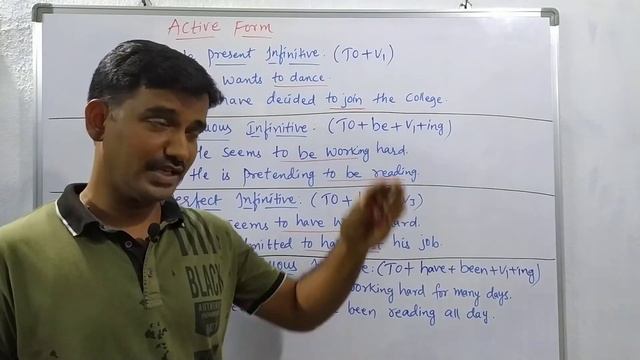 Active Form
present Infinitive. (TO+V1)
wants to dance.
have decided to join the College.
Infinitive. (TO+be+V1+ing)
He seems to be working hard.
He is pretending to be reading.
Infinitive. (TO+ V3)
seems to have hard.
to his job.
Infinitive: (TO+have+been+V1+ing)
working hard for many days.
been reading all day.
BLACK